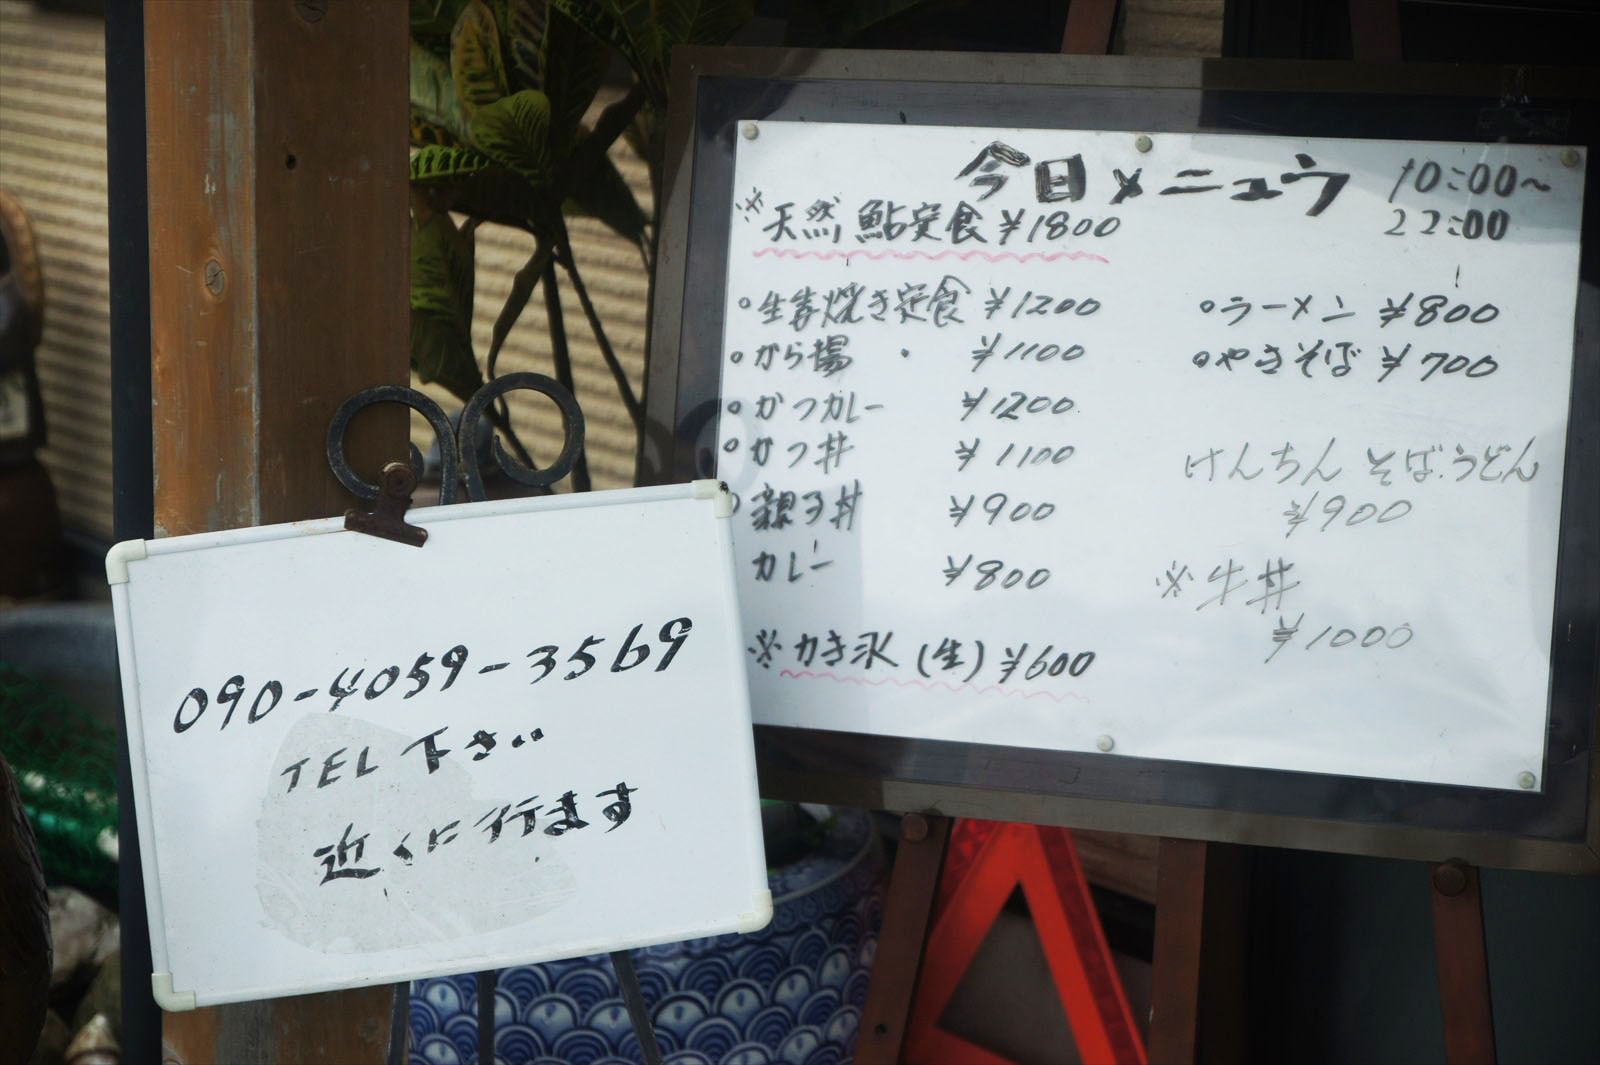 今日メニュウ 10:00～
22:00
※天然鮎定食¥1800
○生姜焼き定食 ¥1200
○から揚 ・ ¥1100
○かつカレー ¥1200
○かつ丼 ¥1100
○親子丼 ¥900
カレー ¥800
※かき氷(生)¥600
○ラーメン ¥800
○やきそば ¥700
けんちん そば.うどん
¥900
※牛丼
¥1000
090-4059-3569
TEL下さい
近くに行ます